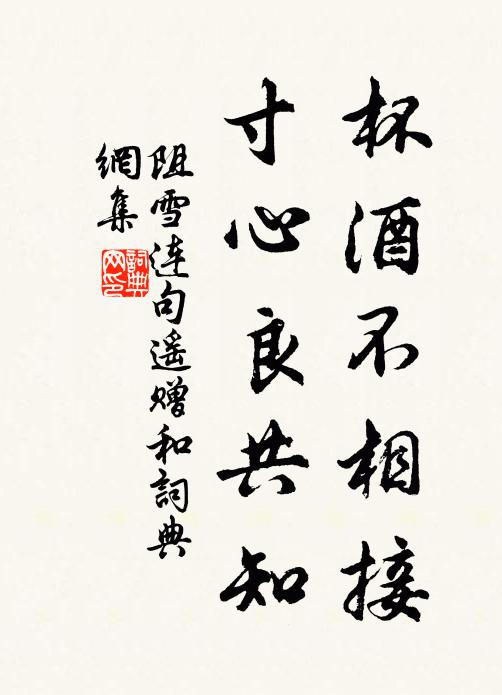 杯酒不相接
寸心良共知
阻雪连句遥赠和詞典
網集
詞典
网印